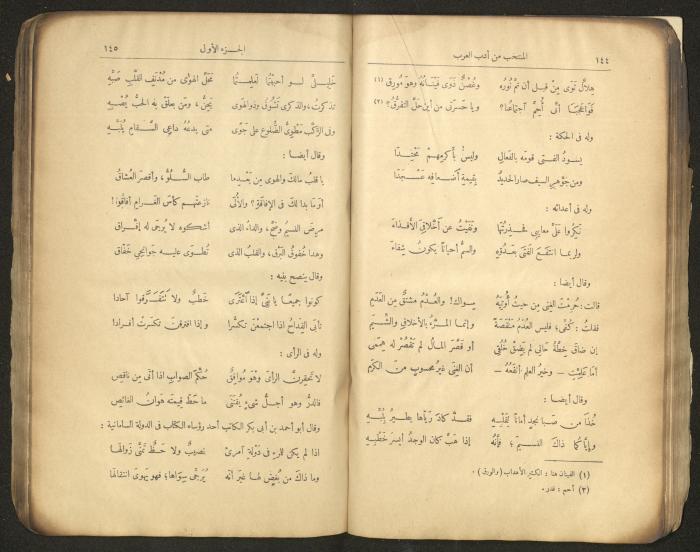 ١٤٤
المنتخب من أدب العرب
هلالٌ ثوى مِنْ قبل أن تمَّ نُورُه وغُصْنٌ ذَوَى فَيْنَانُهُ وهو مُورِق (١)
فَوَاعجبًا أنّى أُحِمَّ اجتماعُنا؟ ويا حسرتى من أين حلَّ التفرقُ؟ (٢)
وله فى الحكمة :
يسودُ الفتى قومَه بالفَعالِ وليس بأكرمِهمْ مَحْتِدَا
ومن جَوْهَرِ السيف صار الحديدُ بقيمةِ أَضعافِه عَسْجَدَا
وله فى أعدائه :
ذَكَروا علىَّ معايبى فحَذِرْتُها ونَفَيْتُ عن أخلاقىَ الأقذاءَ
ولربما انتفع الفتى بعدوّه والسمُّ أحيانًا يكونُ شِفاءَ
وقال أيضا :
قالت: حُرِمْتَ الغِنى مِن حيثُ أُوتِيَهُ سِواك! والعُدْمُ مشتقٌّ مِن العَدَمِ
فقلتُ : كُفّى؛ فليس العُدْمُ مَنْقَصَةً وإنما المرءُ بالأخلاقِ والشِّيَمِ
إن ضاق خِطَّةُ حالى لم يَضِقْ خُلُقى أو قصَّر المالُ لم تَقْصُرْ له هِمَمى
أمَا علمتِ — وخيرُ العلمِ أنفعُهُ — أن الغِنى غيرُ محسوبٍ من الكرَمِ
وقال أيضا :
خُذَا من صَبا نجدٍ أمانًا لِقَلْبِهِ فقد كاد رَيّاها يطيرُ بِلُبِّهِ
وإيّاكما ذاك النسيمَ؛ فإنَّهُ إذا هَبَّ كان الوجدُ أيسرَ خَطْبِهِ
(١) الفينان هنا : الكثير الأهداب (والورق) .
(٢) أحم : قدر .
الجزء الأول
١٤٥
خليلىَّ لو أحببتُما لعلمتُما محلَّ الهوى من مُدْنَفِ القلبِ صَبِّهِ
تذكرتُ، والذكرى تَشُوقُ وذو الهوى يَحِنُّ، ومن يعلَقْ به الحبُّ يُصْبِهِ
وفى الرَّكْبِ مَطْوِىُّ الضلوعِ على جَوًى متى يدعُهُ داعى السَّقامِ يُلَبِّهِ
وقال أيضا :
يا قلبُ مالكَ والهوى مِن بَعْدِما طاب السُّلُوُّ، وأقصر العُشّاقُ
أوَ ما بدا لك فى الإفاقةِ؟ والأُلَى نازعتَهم كأسَ الغرامِ أفاقوا!
مرِض النسيمُ وصحَّ، والداءُ الذى أشكوه لا يُرجَى له إفْراقُ
وهدا خُفوقُ البَرْقِ، والقلبُ الذى تُطْوَى عليه جوانحِى خَفّاقُ
وقال ينصح بنيه :
كونوا جميعًا يا بَنِىَّ إذا اعْتَرَى خَطْبٌ ولا تَتَفَرَّقوا آحادا
تأبَى القِداحُ إذا اجتمعْنَ تكسُّرا وإذا افترقنَ تكسَّرتْ أفرادا
وله فى الرأى :
لا تَحقِرنَّ الرأىَ وَهْوَ مُوافِقٌ حُكْمَ الصوابِ إذا أتى مِن ناقِصِ
فالدُّرُّ وهو أجلُّ شىءٍ يُقْتَنَى ما حَطَّ قيمتَه هَوانُ الغائِصِ
وقال أبو أحمد بن أبى بكر الكاتب أحد رؤساء الكتاب فى الدولة السامانية :
اذا لم يكن للمرءِ فى دَوْلةِ امرئٍ نصيبٌ ولا حَظٌّ تمنَّى زوالَها
وما ذاك من بُغضٍ لها غيرَ أنّهُ يُرجِّى سِواها؛ فهو يهوَى انتقالها